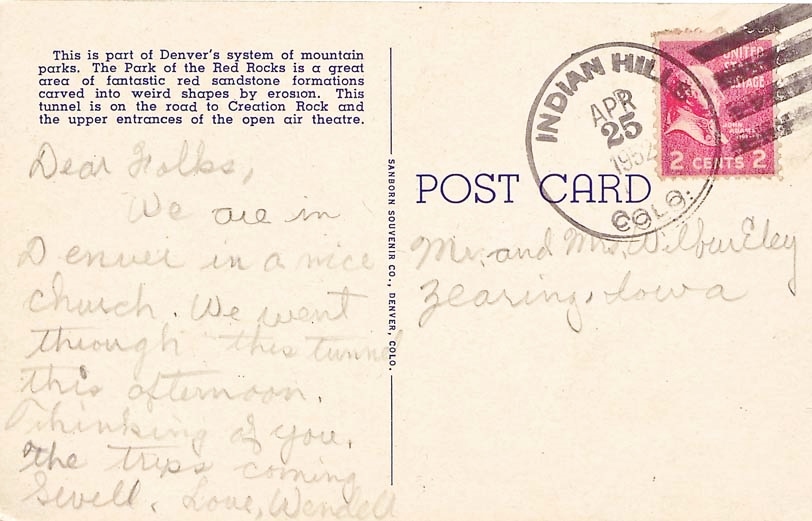 This is part of Denver's system of mountain
parks. The Park of the Red Rocks is a great
area of fantastic red sandstone formations
carved into weird shapes by erosion. This
tunnel is on the road to Creation Rock and
the upper entrances of the open air theatre.
Dear Folks,
We are in
Denver in a nice
church. We went
through this tunnel
this afternoon.
Thinking of you,
the trips coming
Swell. Love, Wendell
SANBORN SOUVENIR CO., DENVER, COLO.
POST CARD
INDIAN HILLS
APR
25
1952
COLO.
UNITED
STATES
POSTAGE
JOHN
ADAMS
2 CENTS 2
Mr. and Mrs. Wilbur Eley
Zearing, Iowa